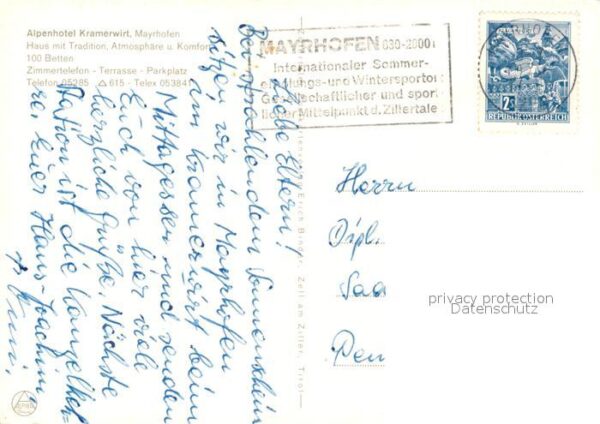 Alpenhotel Kramerwirt, Mayrhofen
Haus mit Tradition, Atmosphäre u. Komfort
100 Betten
Zimmertelefon - Terrasse - Parkplatz
Telefon 05285 615 - Telex 05384
MAYRHOFEN 630-2600
Internationaler Sommer-
erholungs- und Wintersportort
Gesellschaftlicher und sport-
licher Mittelpunkt d. Zillertales
2 S
REPUBLIK ÖSTERREICH
Liebe Eltern!
Bei strahlendem Sonnenschein
sitzen wir in Mayrhofen
am Kramerwirt beim
Mittagessen und senden
Euch von hier viele
herzliche Grüße. Nächste
Station ist die
Euer Hans-Joachim
Erich Bunder, Zell am Ziller, Tirol
Herrn
Dipl.
Saa
Pen
privacy protection
Datenschutz